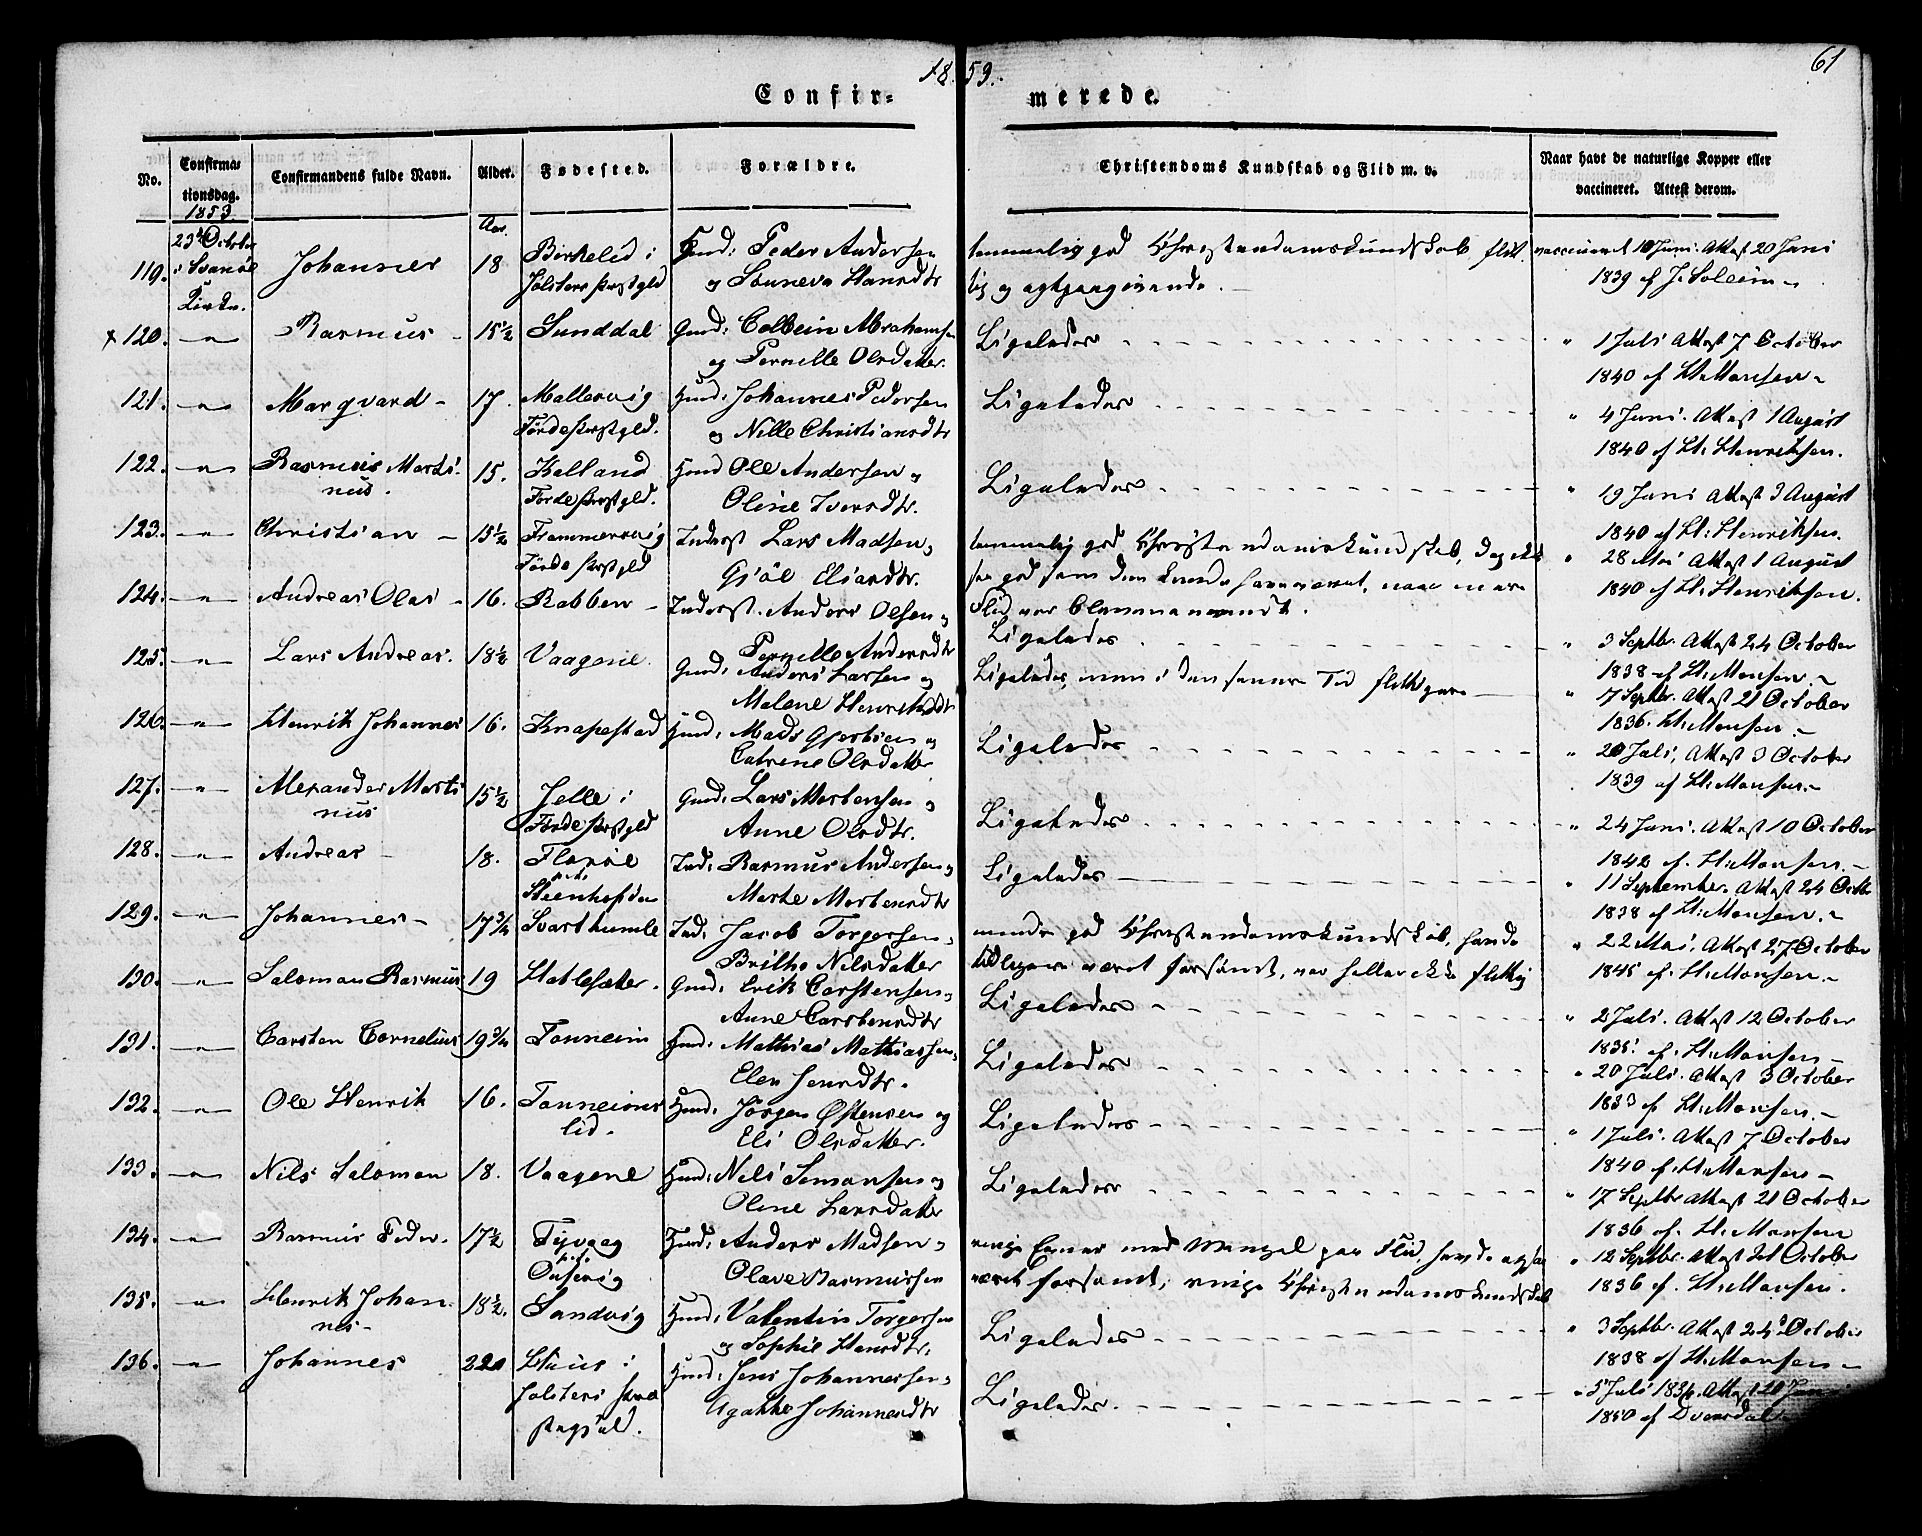 18 53.
61
Confir= merede.
No.
Confirma=
tionsdag.
1853.
Confirmandens fulde Navn.
Alder.
Aar.
Fødested.
Forældre.
Christendoms Kundskab og Flid m. v.
Naar havt de naturlige Kopper eller
vaccineret. Attest derom.
119. 23d October i Svanöe Kirke. Johannes 18 Birkelid i Gmd: Peder Andersen
Jølsters Prstgld og Sønneva Hansdtr
temmelig god Christendomskundskab flit-
tig og agtpaagivende.
vaccineret 10 Juni. Attest 20 Juni
1839 af J. Soleim
x 120. " Rasmus 15½ Sunddal Gmd: Colbein Abrahamsen
og Pernille Olsdatter.
Ligeledes
" 1 Juli Attest 7 October
1840 af H: Monsen
121. " Marqvard 17. Mallevig Hmd: Johannes Pedersen
Førde Prstgld. og Nille Christiansdtr
Ligeledes
" 4 Juni. Attest 1 August
1840 af H: Henriksen.
122. " Rasmus Marti- 15. Kalland Hmd Ole Andersen og
nus. Førde Prstgld. Oline Iversdtr.
Ligeledes
" 19 Juni Attest 3 August
1840 af H: Henriksen.
123. " Christian 15½ Frammersvig Inderst Lars Madsen,
Førde Prstgld Gjöl Eliasdtr.
temmelig god Christendomskundskab, dog ikke
saa god som den kunde have været, naar mere
Flid var anvendt.
" 28 Mai Attest 1 August
1840 af H: Henriksen.
124. " Andreas Olai 16. Rabben Inderst. Anders Olsen,
Pernille Andersdtr
Ligeledes
" 3 Septbr. Attest 24 October
1838 af H: Monsen.
125. " Lars Andreas. 18½ Vaagene. Gmd: Anders Larsen og
Malene Henriksdtr
Ligeledes, men i den senere Tid flittigere
" 7 Septbr. Attest 21 October
1836. H: Monsen.
126. " Henrik Johannes 16. Knapestad Hmd: Mads Gjertsen og
Catrine Olsdatter
Ligeledes
" 20 Juli, Attest 3 October
1839 af H: Monsen.
127. " Alexander Marti 15½ Jelle i Gmd: Lars Mortensen,
nus Førde Prstgld Anne Olsdtr.
Ligeledes
" 24 Juni. Attest 10 October
1842 af. H: Monsen.
128. " Andreas 18. Florøe Ind: Rasmus Andersen,
Marthe Mortensdtr
Ligeledes
" 11 September. Attest 24 Octbr
1838 af H: Monsen.
129. " Johannes 17¾ Svarthumle Ind: Jacob Torgersen,
Brithe Nilsdatter
mindre god Christendomskundskab, havde
tidligere været forsømt, var heller ikke flittig
" 22 Mai. Attest 27 October
1845 af. H: Monsen.
130. " Salomon Rasmus 19 Hatlesæter. Gmd: Erik Carstensen,
Anne Carstensdtr
Ligeledes
" 2 Juli. Attest 12 October
1835 af. H: Monsen
131. " Carsten Cornelius 19¾ Tonneim Hmd: Mathias Mathiassen,
Elen Jensdtr.
Ligeledes
" 20 Juli. Attest 3 October
1833 af H: Monsen.
132. " Ole Henrik 16. Tonneims Hmd: Jørgen Østensen og
lid. Eli Olsdatter.
Ligeledes
" 1 Juli. Attest 7 October
1840 af. H: Monsen
133. " Nils Salomon 18. Vaagene Hmd: Nils Simonsen og
Oline Larsdatter
Ligeledes
" 7 Septbr Attest 21 October
1836 af. H: Monsen
134. " Rasmus Peder. 17½ Hmd: Anders Madsen,
Olave Rasmussen
ringe Evner med Mangel paa Flid, havde ogsaa
været forsømt, ringe Christendomskundskab
" 12 Septbr. Attest 21 October
1836 af. H: Monsen.
135. " Henrik Johan- 18½. Sandvig Hmd: Valentin Torgersen
nes og Sophie Hansdtr.
Ligeledes
" 3 Septbr. Attest 24d October
1838 af H: Monsen
136. " Johannes 22 Huus i Hmd: Jens Johannessen,
Jølsters Præ Agathe Johannesdtr
stegjæld.
Ligeledes.
" 5 Juli 1836. Attest 20 Juni
1850 af